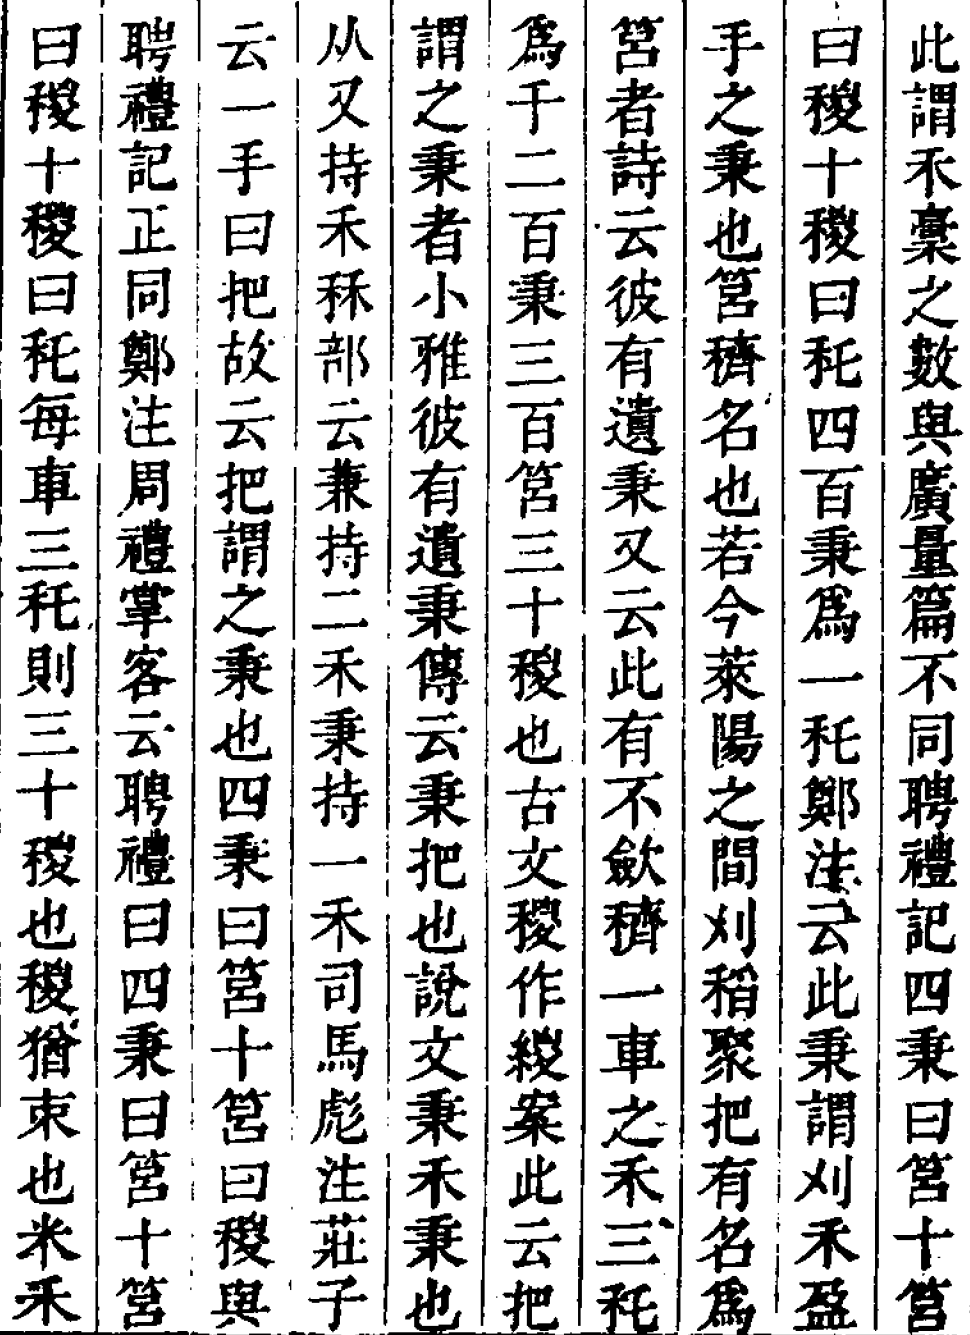 此謂禾稾之數與廣量篇不同聘禮記四秉曰筥十筥
曰稯十稯曰秅四百秉爲一秅鄭注云此秉謂刈禾盈
手之秉也筥穧名也若今萊陽之間刈稻聚把有名爲
筥者詩云彼有遺秉又云此有不歛穧一車之禾三秅
爲千二百秉三百筥三十稯也古文稯作緵案此云把
謂之秉者小雅彼有遺秉傳云秉把也說文秉禾秉也
从又持禾秝部云兼持二禾秉持一禾司馬彪注莊子
云一手曰把故云把謂之秉也四秉曰筥十筥曰稯與
聘禮記正同鄭注周禮掌客云聘禮曰四秉曰筥十筥
曰稯十稯曰秅每車三秅則三十稯也稯猶束也米禾